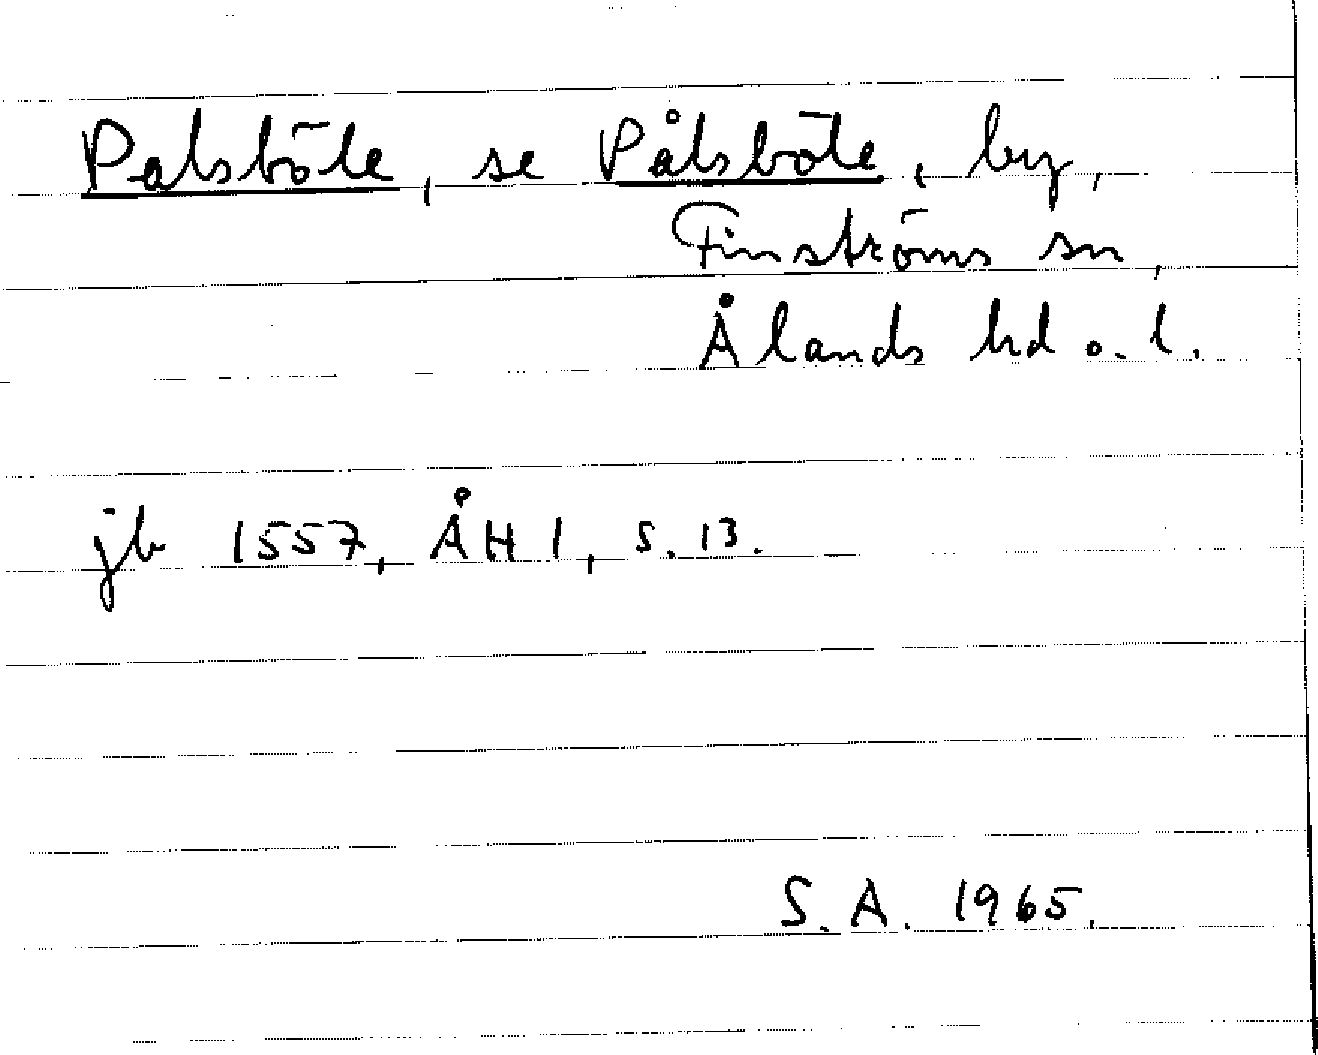 Palsböle, se Pålsböle, by,
Finströms sn,
Ålands hd o. l.
jb 1557, ÅH 1, s. 13.
S. A. 1965.